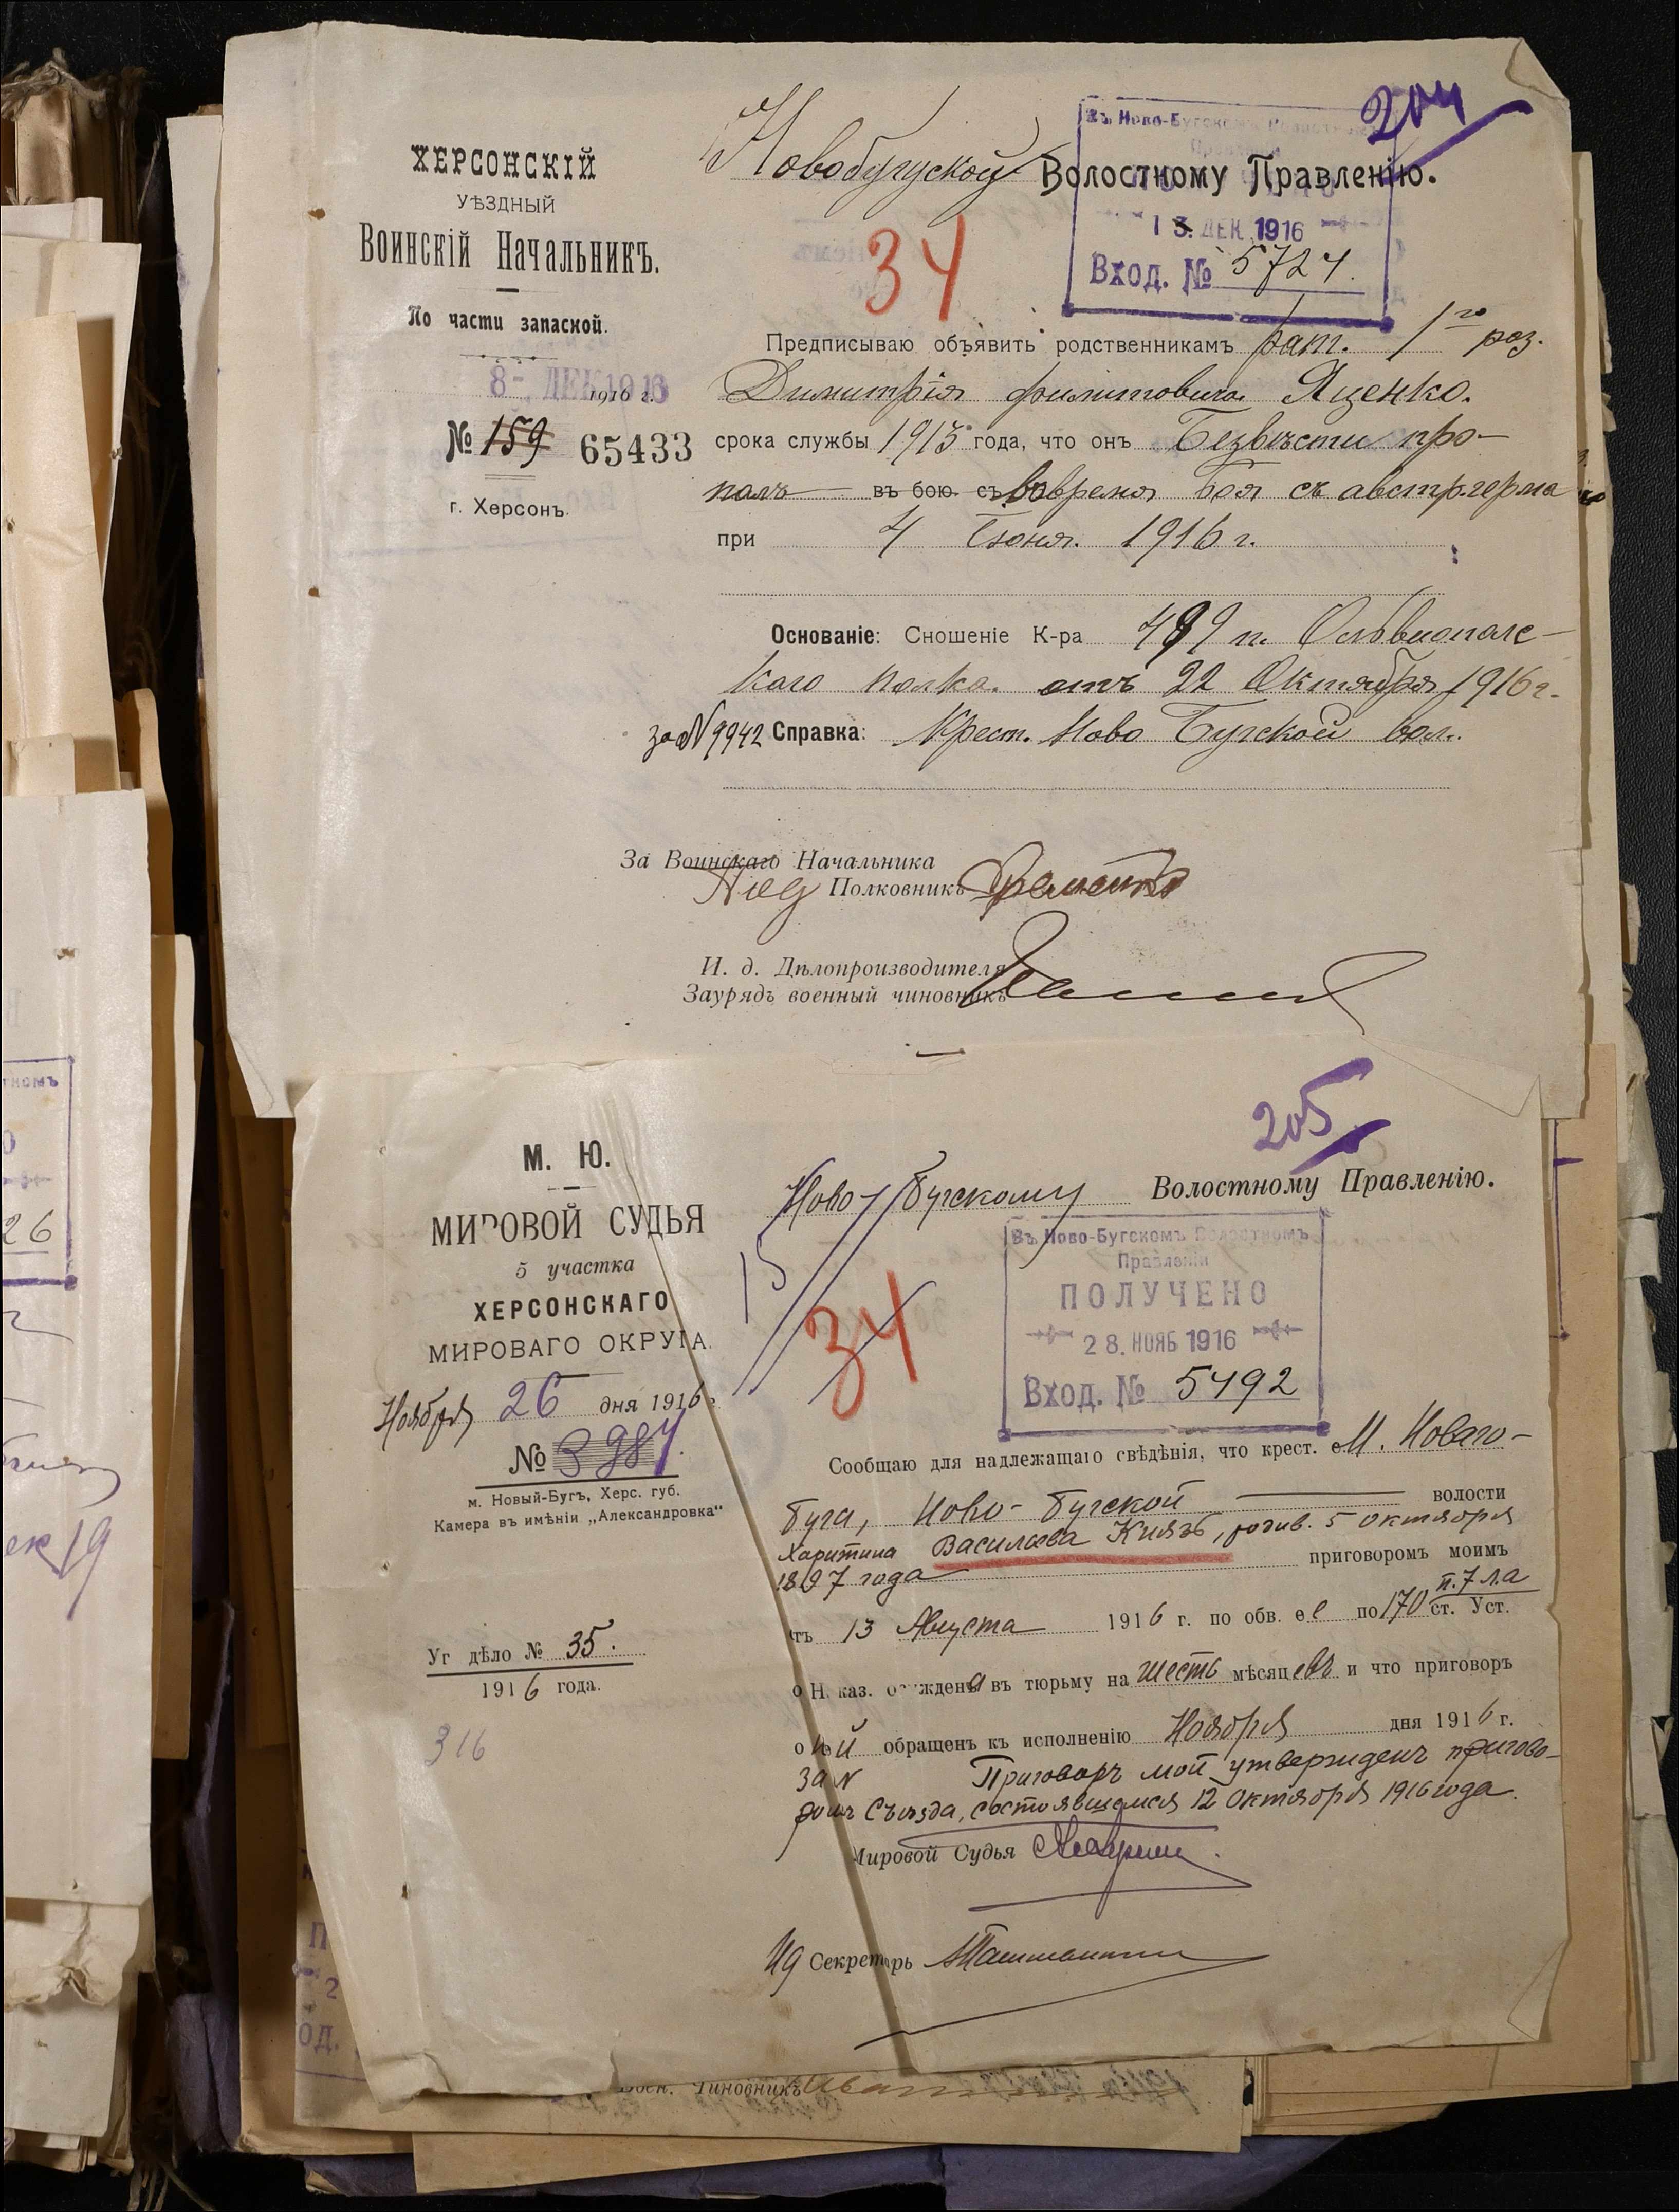 204
ХЕРСОНСКІЙ
УѢЗДНЫЙ
ВОИНСКІЙ НАЧАЛЬНИКЪ.
По части запасной.
8 – ДЕК 1916
1916 г.
№ 159 65433
г. Херсонъ.
Новобугуской Волостному Правленію.
Въ Ново-Бугскомъ Волостномъ
Правленіи
13. ДЕК. 1916
Вход. № 5724.
34
Предписываю объявить родственникамъ рат. 1го раз.
Димитрія Филиповича Яценко.
срока службы 1913 года, что онъ Безвѣсти про-
палъ въ бою съ вовремя боя съ австр.герма
при 4 Іюня. 1916 г.
Основаніе: Сношеніе К-ра 489 п. Ольвиополс-
каго полка. отъ 22 Октября 1916 г.
за N 9942 Справка: Крест. Ново Бугской вол.
За Воинскаго Начальника
Под Полковникъ
И. д. Дѣлопроизводителя
Заурядъ военный чиновникъ
205
М. Ю.
МИРОВОЙ СУДЬЯ
5 участка
ХЕРСОНСКАГО
МИРОВАГО ОКРУГА.
Ноября 26 дня 1916
№ 3984.
м. Новый-Бугъ, Херс. губ.
Камера въ имѣніи „Александровка“
Уг дѣло № 35.
1916 года.
316
Ново-Бугскому Волостному Правленію.
15
34
Въ Ново-Бугскомъ Волостномъ
Правленіи
ПОЛУЧЕНО
28. НОЯБ 1916
Вход. № 5492
Сообщаю для надлежащаго свѣдѣнія, что крест. с М. Новаго-
Буга, Ново-Бугской волости
Харитина Васильева Князь, родив. 5 октября
1897 года приговоромъ моимъ
отъ 13 Августа 1916 г. по обв. ее по 170 ст. Уст.
п. 7 л. а
о Наказ. осуждена въ тюрьму на шесть мѣсяцевъ и что приговоръ
о ней обращенъ къ исполненію Ноября дня 1916 г.
за N Приговоръ мой утвержденъ пригово-
ромъ Съѣзда, состоявшемся 12 октября 1916 года.
Мировой Судья
Ид Секретарь
Воен. Чиновникъ